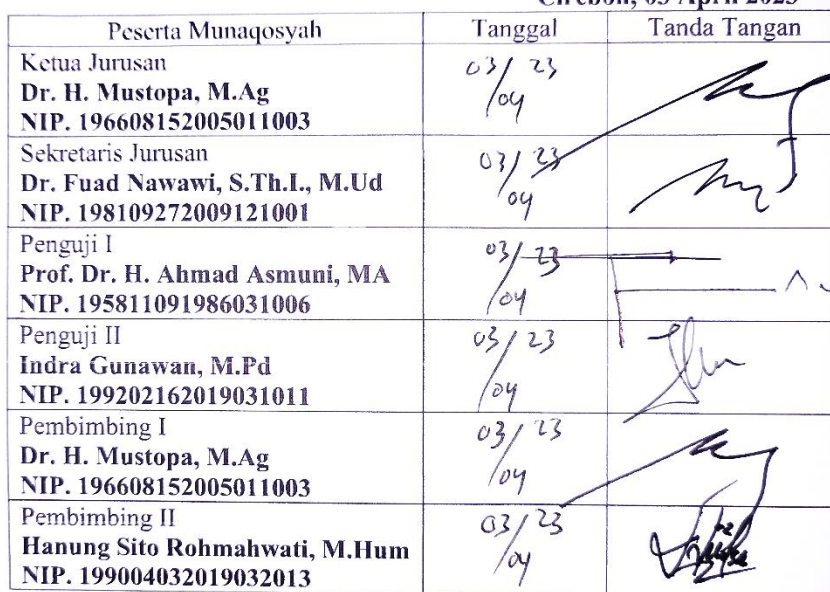 Cirebon, 03 April 2023
Peserta Munaqosyah Tanggal Tanda Tangan
Ketua Jurusan
Dr. H. Mustopa, M.Ag
NIP. 196608152005011003
03/04 23
Sekretaris Jurusan
Dr. Fuad Nawawi, S.Th.I., M.Ud
NIP. 198109272009121001
03/04 23
Penguji I
Prof. Dr. H. Ahmad Asmuni, MA
NIP. 195811091986031006
03/04 23
Penguji II
Indra Gunawan, M.Pd
NIP. 199202162019031011
03/04 23
Pembimbing I
Dr. H. Mustopa, M.Ag
NIP. 196608152005011003
03/04 23
Pembimbing II
Hanung Sito Rohmahwati, M.Hum
NIP. 199004032019032013
03/04 23